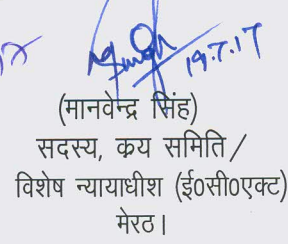 19.7.17
(मानवेन्द्र सिंह)
सदस्य, क्रय समिति /
विशेष न्यायाधीश (ई०सी०एक्ट)
मेरठ।